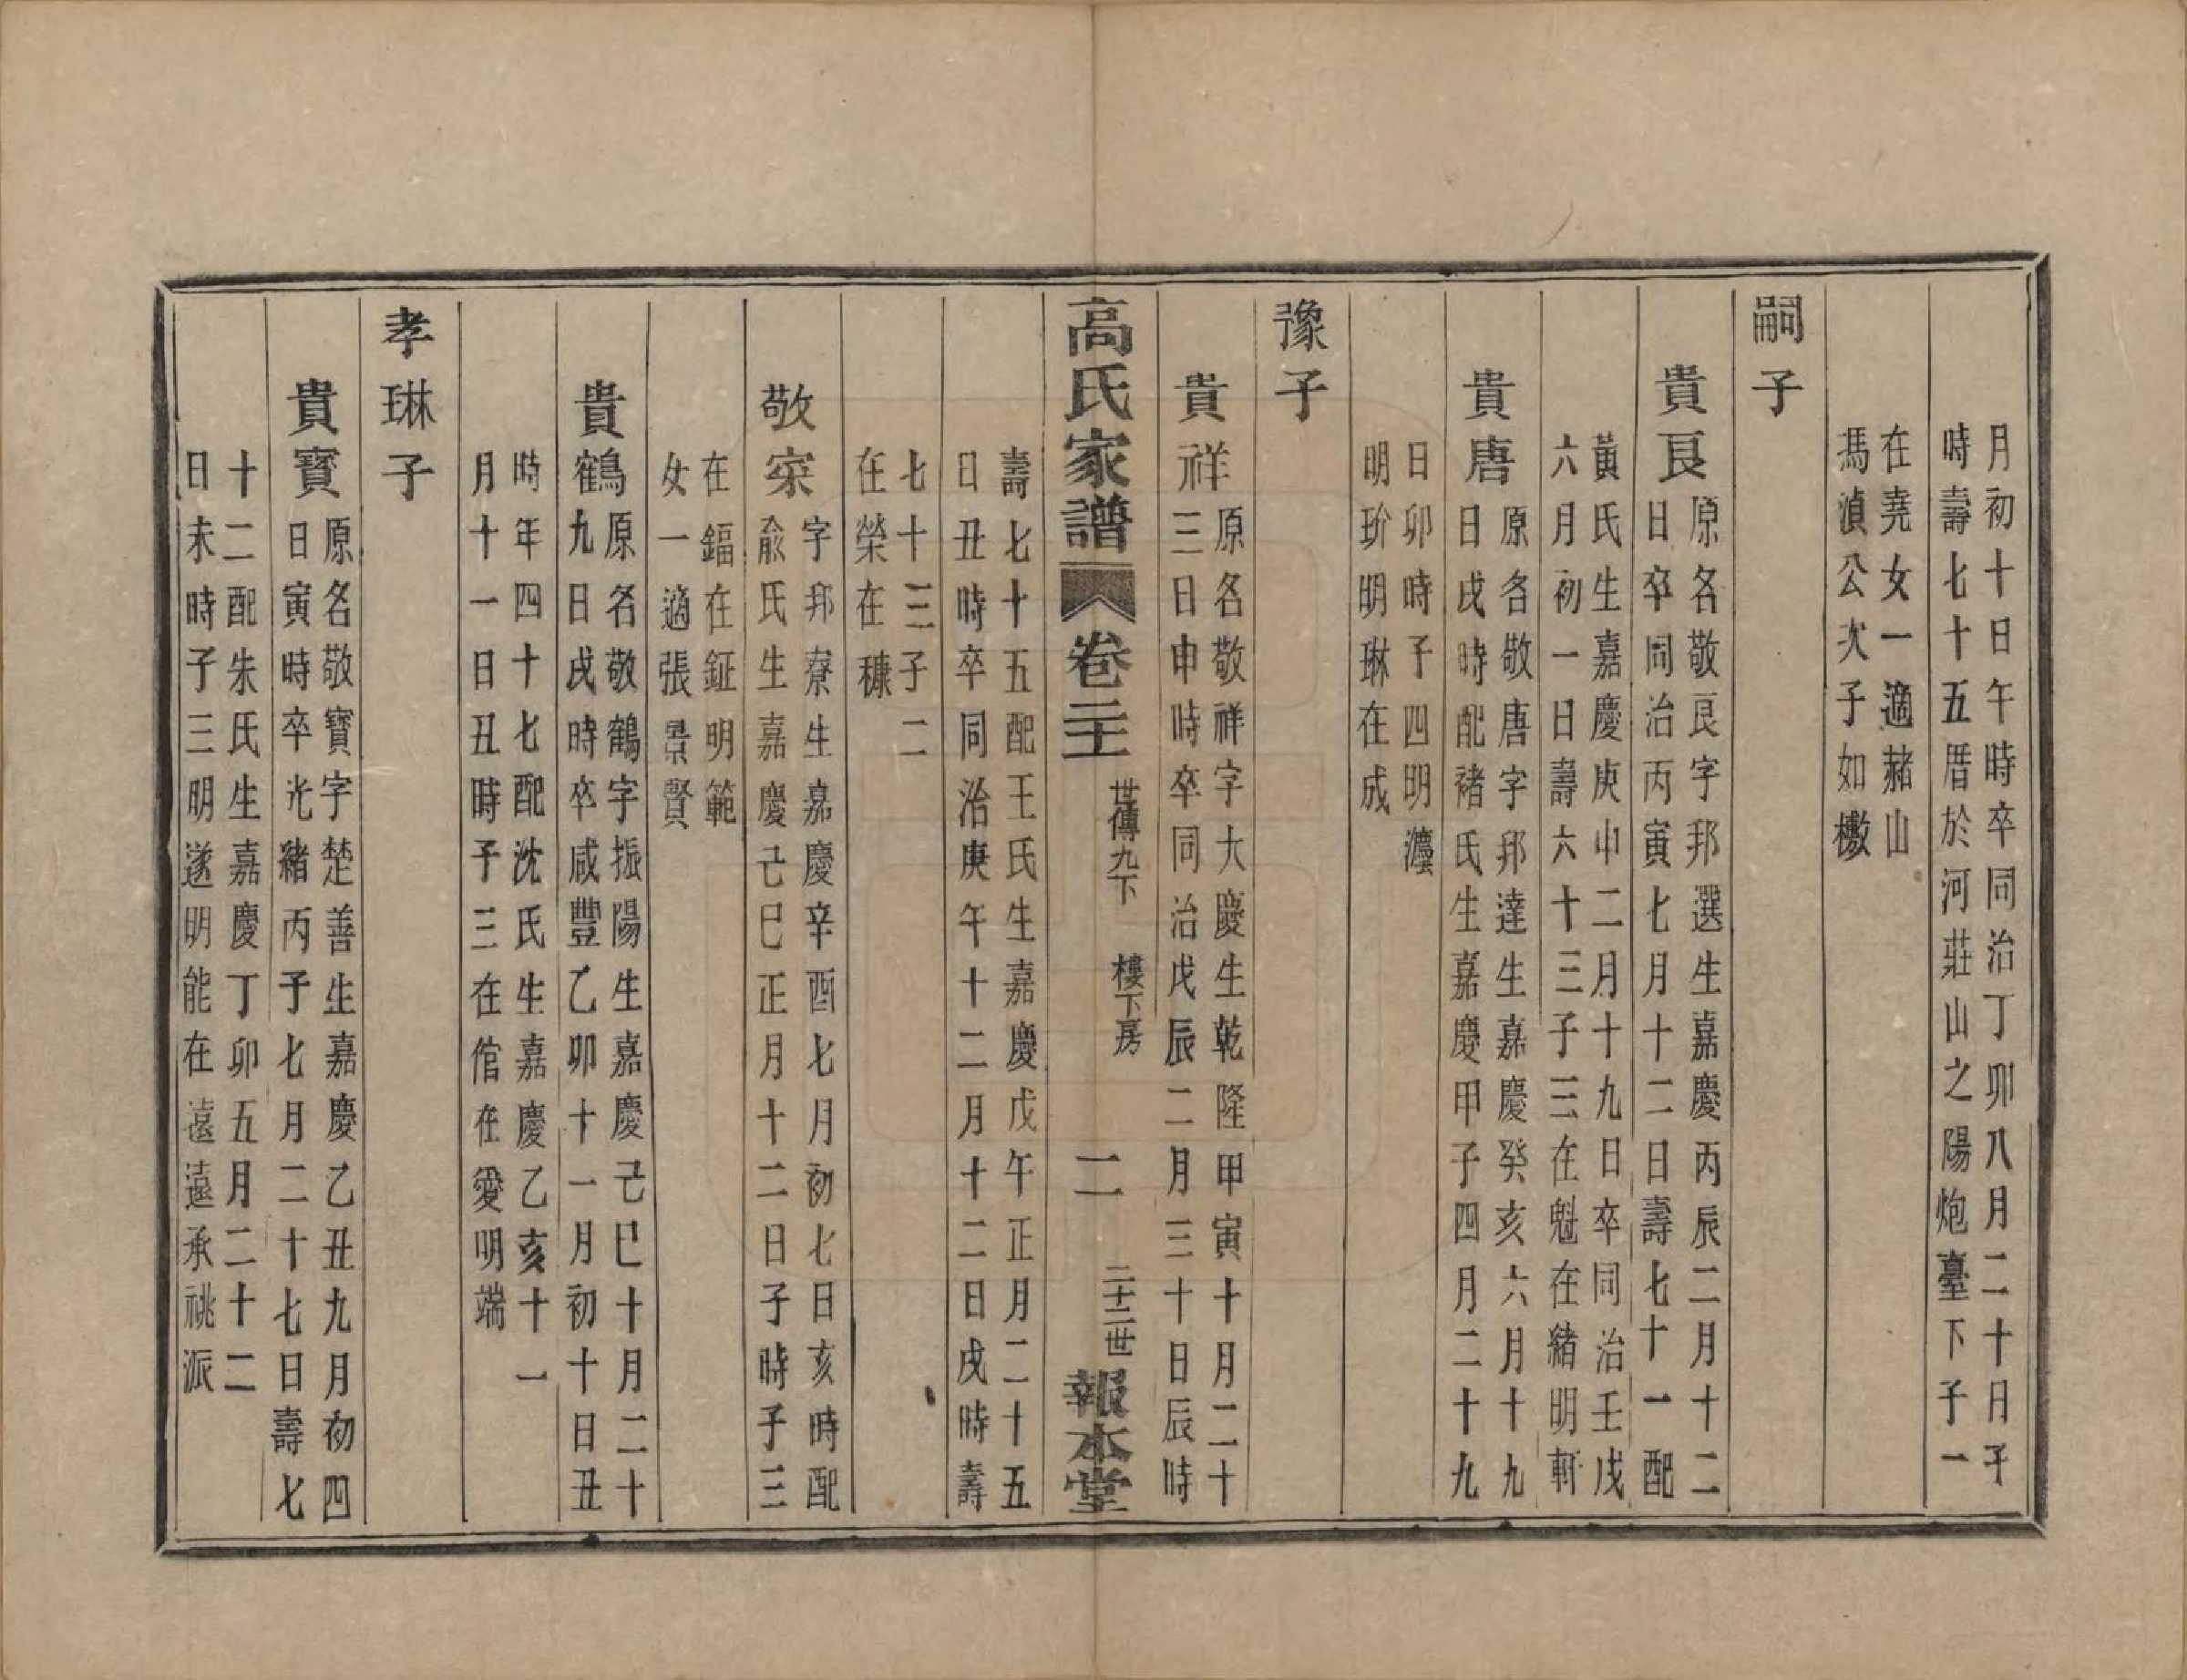 月初十日午時卒同治丁卯八月二十日子
時壽七十五厝於河莊山之陽炮臺下子一
在堯女一適赭山
馮湞公次子如檄
嗣子
貴良
原名敬良字邦選生嘉慶丙辰二月十二
日卒同治丙寅七月十二日壽七十一配
黃氏生嘉慶庚申二月十九日卒同治壬戌
六月初一日壽六十三子三在魁在緒明軒
貴唐
原名敬唐字邦達生嘉慶癸亥六月十九
日戌時配褚氏生嘉慶甲子四月二十九
日卯時子四明灋
明玠明琳在成
豫子
貴祥
原名敬祥字大慶生乾隆甲寅十月二十
三日申時卒同治戊辰二月三十日辰時
高氏家譜 卷二十 世傳九下 樓下房 二 二十二世 報本堂
壽七十五配王氏生嘉慶戊午正月二十五
日丑時卒同治庚午十二月十二日戌時壽
七十三子二
在榮在穅
敬宷
字邦寮生嘉慶辛酉七月初七日亥時配
俞氏生嘉慶己巳正月十二日子時子三
在鍢在鉦明範
女一適張景賢
貴鶴
原名敬鶴字振陽生嘉慶己巳十月二十
九日戌時卒咸豐乙卯十一月初十日丑
時年四十七配沈氏生嘉慶乙亥十一
月十一日丑時子三在倌在愛明端
孝琳子
貴寶
原名敬寶字楚善生嘉慶乙丑九月初四
日寅時卒光緒丙子七月二十七日壽七
十二配朱氏生嘉慶丁卯五月二十二
日未時子三明遂明能在遠遠承祧派